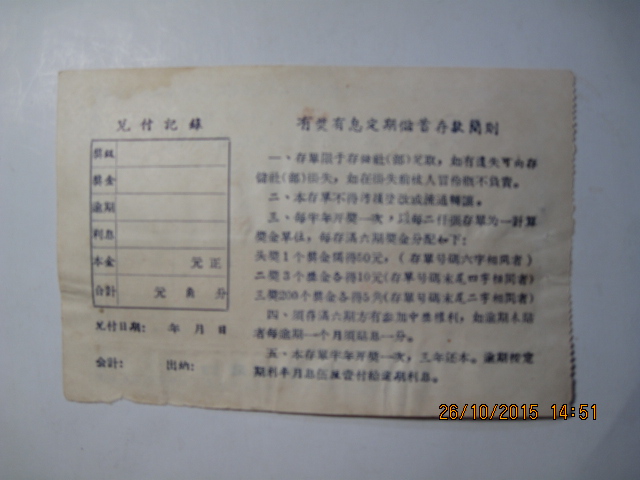 兑付記錄
奬級
奬金
逾期
利息
本金 元正
合計 元 角 分
兑付日期: 年 月 日
会計: 出納:
有奬有息定期儲蓄存款簡則
一、存單限于存儲社(部)兑取,如有遺失可向存
儲社(部)掛失,如在掛失前被人冒領概不負責。
二、本存單不得塗改或流通轉讓。
三、每半年开奬一次,以每二仟張存單为一計算
奬金單位,每存滿六期奬金分配如下:
头奬1个奬金獨得50元,(存單号碼六字相同者)
二奬3个奬金各得10元(存單号碼末尾四字相同者)
三奬200个奬金各得5角(存單号碼末尾二字相同者)
四、須得滿六期方有参加中奬權利,如逾期未貼
者每逾期一个月須貼息一分。
五、本存單半年开奬一次,三年还本。逾期按定
期利率月息伍厘壹付給逾期利息。
26/10/2015 14:51